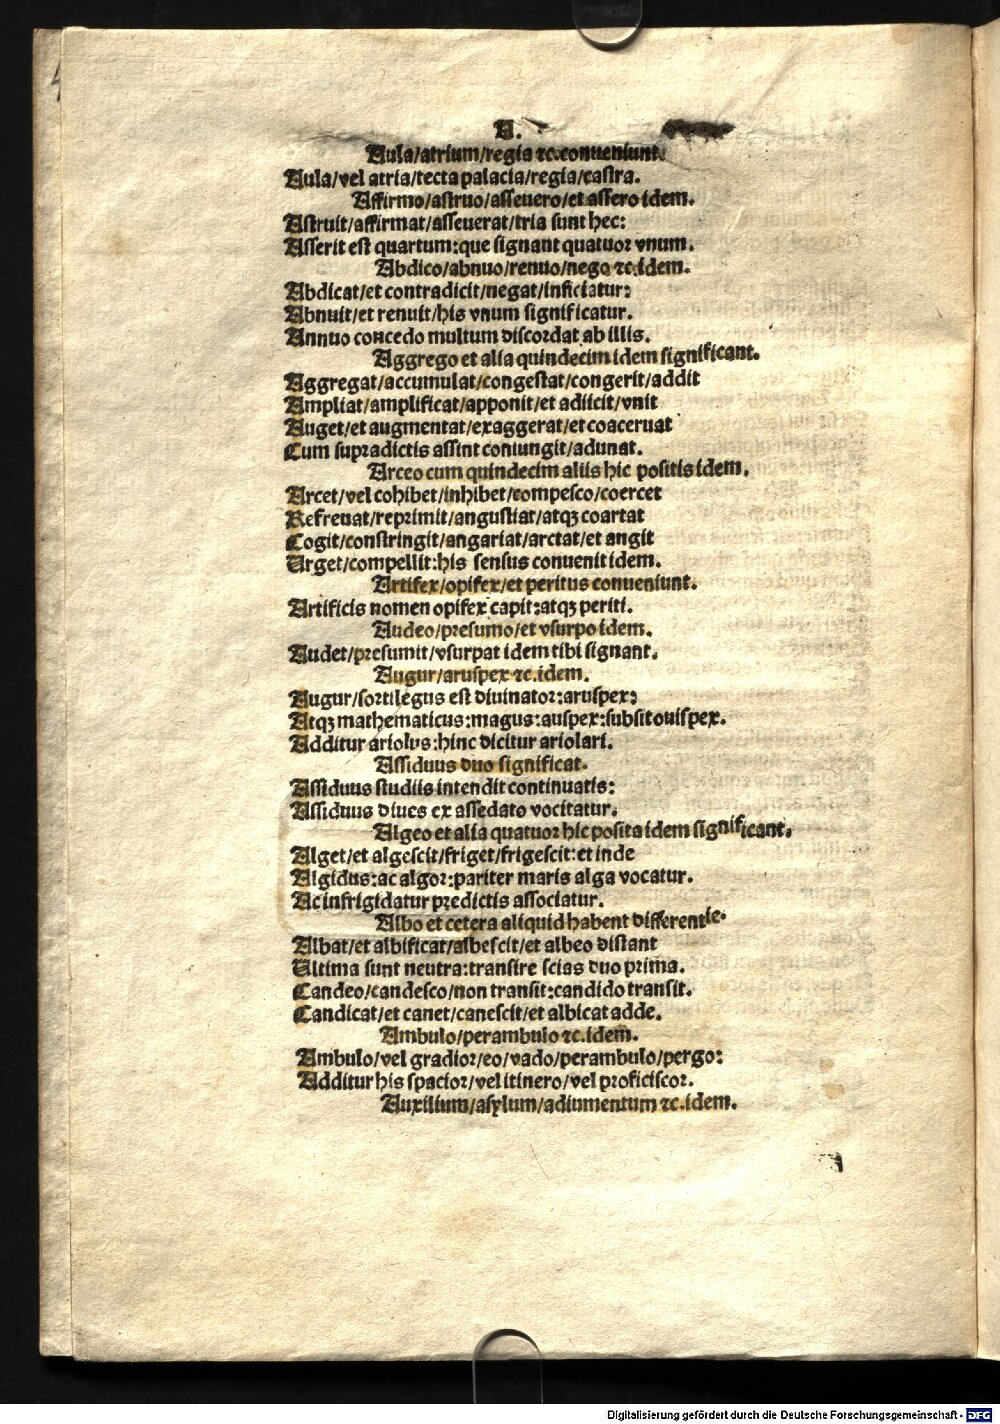 A.
Aula/atrium/regia ⁊c.conueniunt.
Aula/vel atria/tecta palacia/regia/castra.
Affirmo/astruo/asseuero/et assero idem.
Astruit/affirmat/asseuerat/tria sunt hec:
Asserit est quartum:que signant quatuor vnum.
Abdico/abnuo/renuo/nego ⁊c.idem.
Abdicat/et contradicit/negat/inficiatur:
Abnuit/et renuit/his vnum significatur.
Annuo concedo multum discordat ab illis.
Aggrego et alia quindecim idem significant.
Aggregat/accumulat/congestat/congerit/addit
Ampliat/amplificat/apponit/et adiicit/vnit
Auget/et augmentat/exaggerat/et coaceruat
Cum supradictis assint coniungit/adunat.
Arceo cum quindecim aliis hic positis idem.
Arcet/vel cohibet/inhibet/compesco/coercet
Refrenat/reprimit/angustiat/atqꝫ coartat
Cogit/constringit/angariat/arctat/et angit
Urget/compellit:his sensus conuenit idem.
Artifex/opifex/et peritus conueniunt.
Artificis nomen opifex capit:atqꝫ periti.
Audeo/presumo/et vsurpo idem.
Audet/presumit/vsurpat idem tibi signant.
Augur/aruspex ⁊c.idem.
Augur/sortilegus est diuinator:aruspex:
Atqꝫ mathematicus:magus:auspex:subsit ouispex.
Additur ariolus:hinc dicitur ariolari.
Assiduus duo significat.
Assiduus studiis intendit continuatis:
Assiduus diues ex assedato vocitatur.
Algeo et alia quatuor hic posita idem significant.
Alget/et algescit/friget/frigescit:et inde
Algidus:ac algor:pariter maris alga vocatur.
Ac infrigidatur predictis associatur.
Albo et cetera aliquid habent differentie.
Albat/et albificat/albescit/et albeo distant
Ultima sunt neutra:transire scias duo prima.
Candeo/candesco/non transit:candido transit.
Candicat/et canet/canescit/et albicat adde.
Ambulo/perambulo ⁊c.idem.
Ambulo/vel gradior/eo/vado/perambulo/pergo:
Additur his spacior/vel itinero/vel proficiscor.
Auxilium/asylum/adiumentum ⁊c.idem.
Digitalisierung gefördert durch die Deutsche Forschungsgemeinschaft - DFG